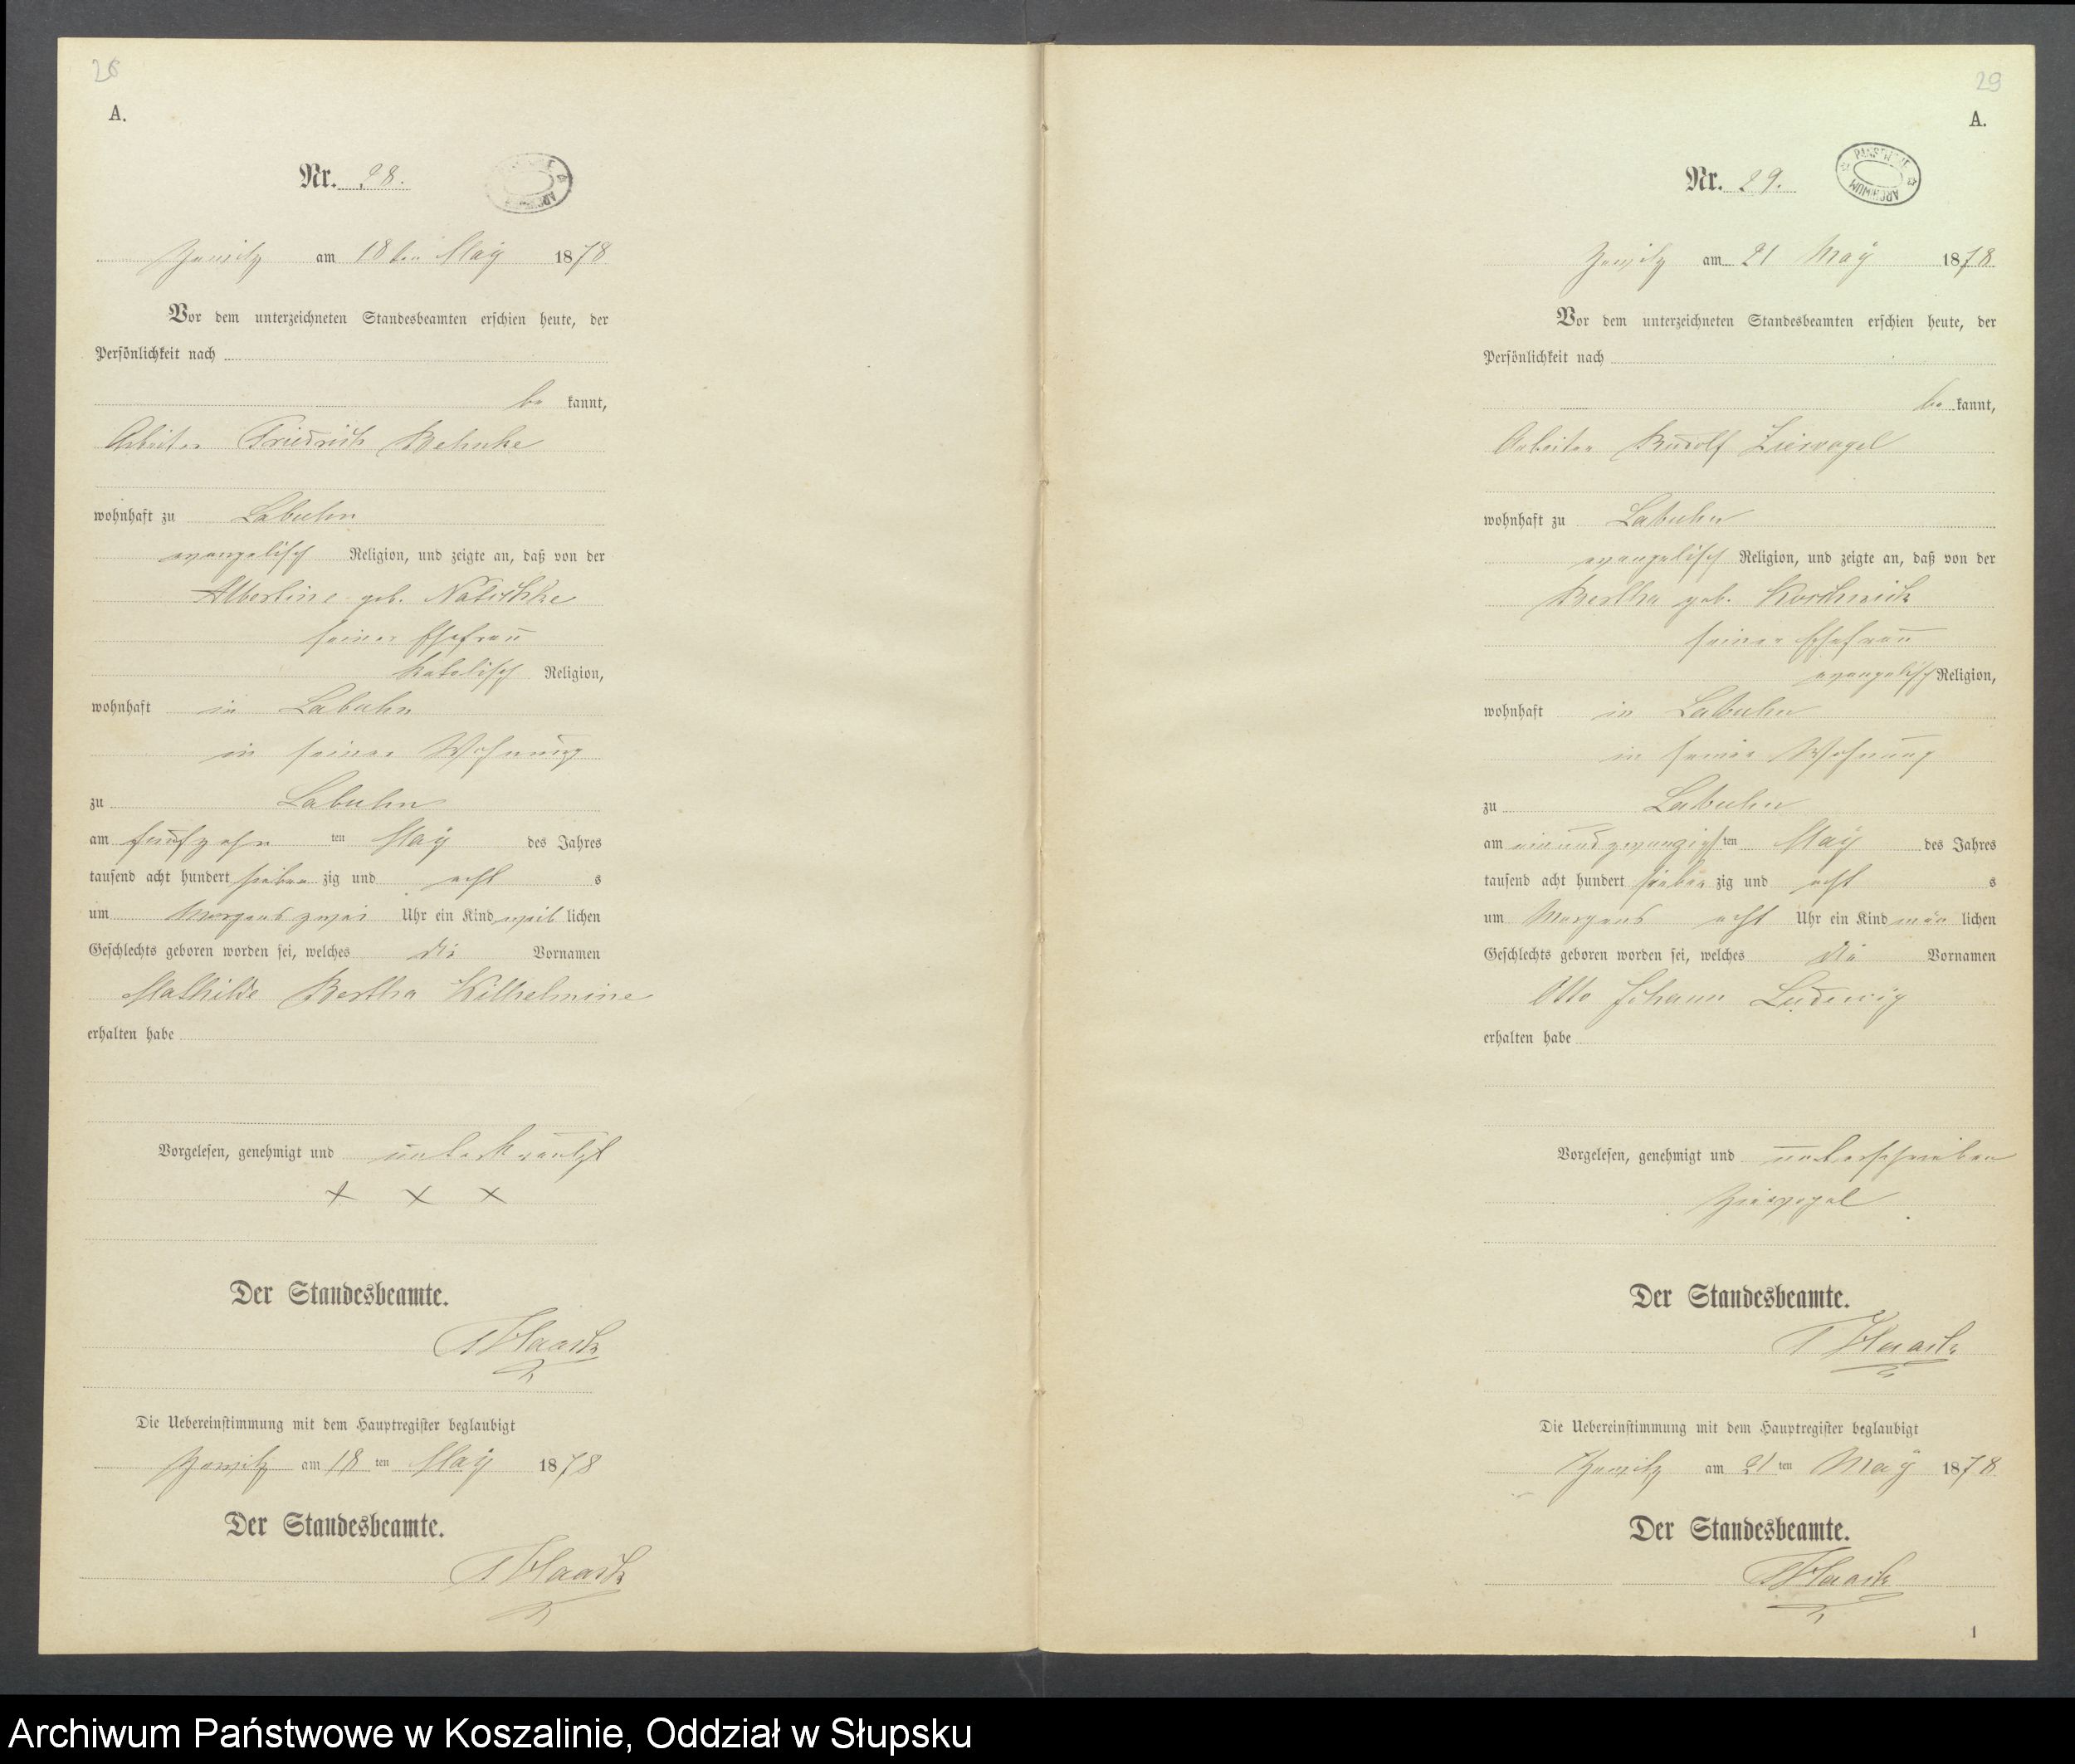 28
A.
Nr. 28.
Zewitz am 18ten May 1878
Vor dem unterzeichneten Standesbeamten erschien heute, der
Persönlichkeit nach
be kannt,
Arbeiter Friedrich Behnke
wohnhaft zu Labuhn
evangelisch Religion, und zeigte an, daß von der
Albertine geb.
seiner Ehefrau
katolisch Religion,
wohnhaft in Labuhn
in seiner Wohnung
zu Labuhn
am funfzehn ten May des Jahres
tausend acht hundert sieben zig und acht s
um Morgens zwei Uhr ein Kind weib lichen
Geschlechts geboren worden sei, welches die Vornamen
Mathilde Bertha Wilhelmine
erhalten habe
Vorgelesen, genehmigt und unterkreutzt
+ × ×
Der Standesbeamte.
Haack
Die Uebereinstimmung mit dem Hauptregister beglaubigt
Zewitz am 18 ten May 1878
Der Standesbeamte.
Haack
29
A.
Nr. 29.
PAŃSTWOWE ARCHIWUM
Zewitz am 21 May 1878
Vor dem unterzeichneten Standesbeamten erschien heute, der
Persönlichkeit nach
be kannt,
Arbeiter Rudolf Ziewogel
wohnhaft zu Labuhn
evangelisch Religion, und zeigte an, daß von der
Bertha geb.
seiner Ehefrau
evangelisch Religion,
wohnhaft in Labuhn
in seiner Wohnung
zu Labuhn
am einundzwanzigsten May des Jahres
tausend acht hundert sieben zig und acht s
um Morgens acht Uhr ein Kind män lichen
Geschlechts geboren worden sei, welches die Vornamen
Otto Johann Ludewig
erhalten habe
Vorgelesen, genehmigt und unterschrieben
Ziewogel
Der Standesbeamte.
Haack
Die Uebereinstimmung mit dem Hauptregister beglaubigt
Zewitz am 21 ten May 1878
Der Standesbeamte.
Haack
1
Archiwum Państwowe w Koszalinie, Oddział w Słupsku